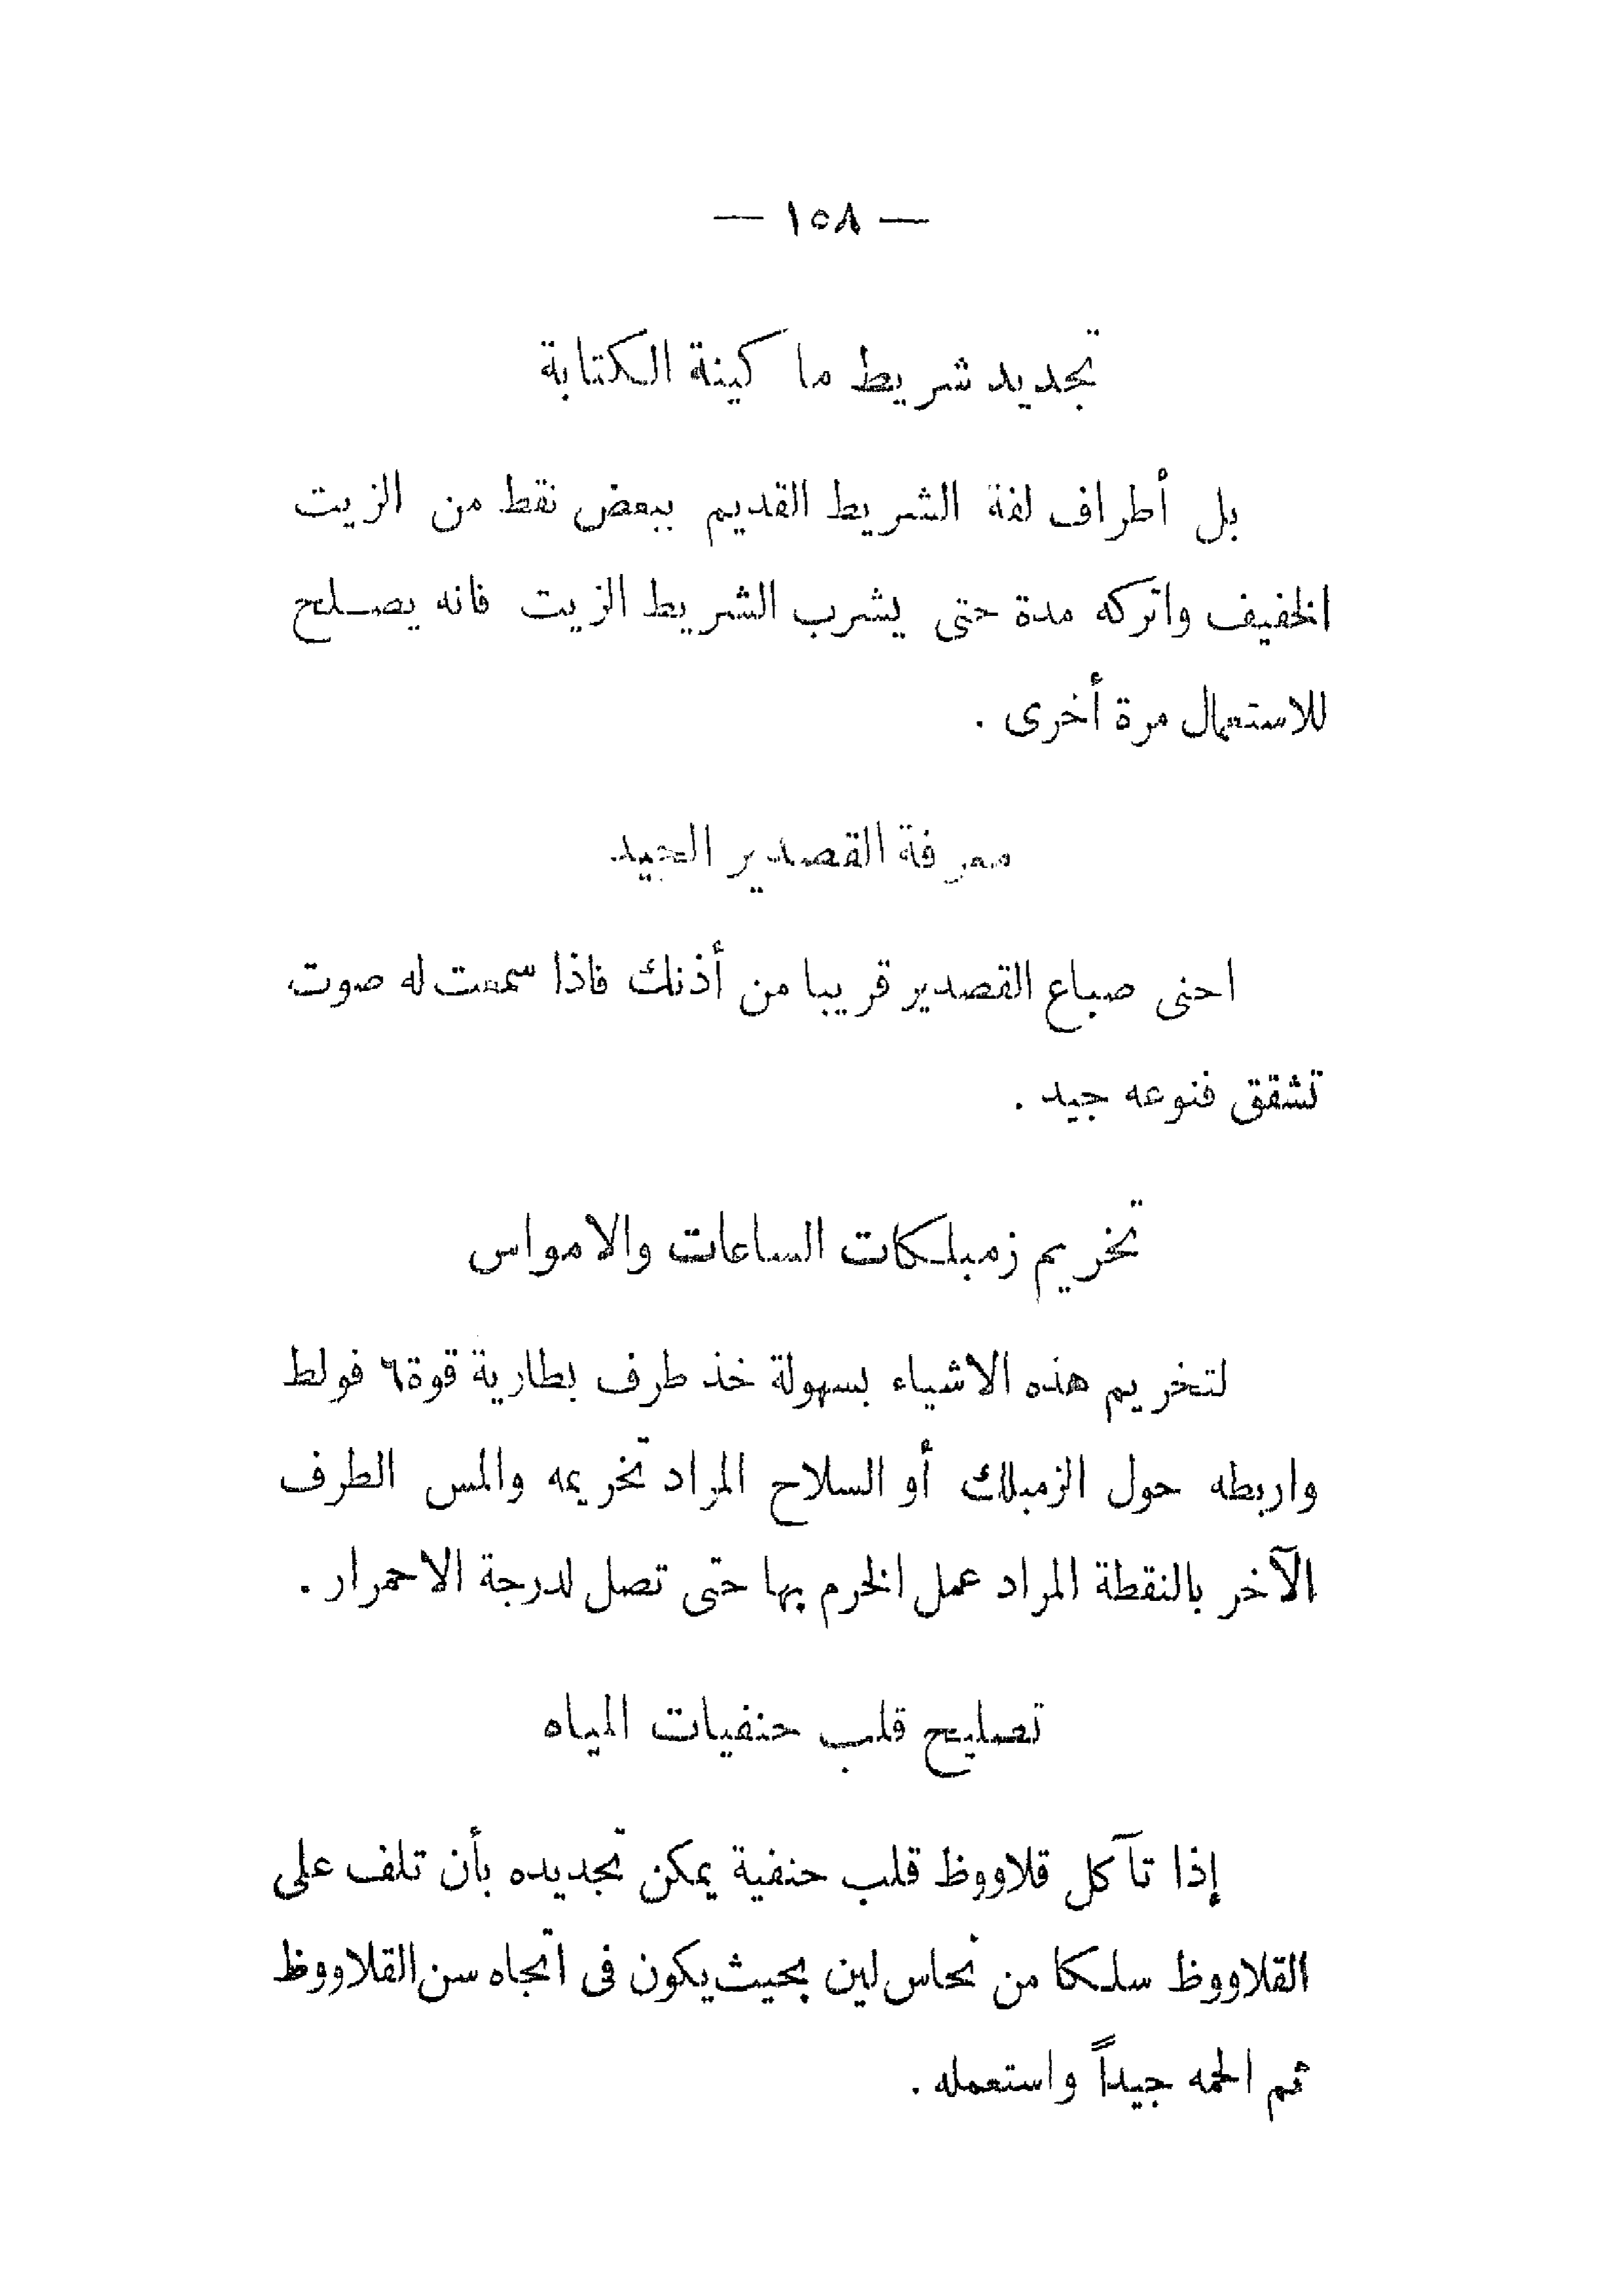 — ١٥٨ —
تجديد شريط ماكينة الكتابة
بل أطراف لفة الشريط القديم ببعض نقط من الزيت
الخفيف واتركه مدة حتى يشرب الشريط الزيت فانه يصلح
للاستعمال مرة أخرى .
معرفة القصدير الجيد
احنى صباع القصدير قريبا من أذنك فاذا سمعت له صوت
تشقق فنوعه جيد .
تخريم زمبلكات الساعات والامواس
لتخريم هذه الاشياء بسهولة خذ طرف بطارية قوة ٦ فولط
واربطه حول الزمبلك أو السلاح المراد تخريمه والمس الطرف
الآخر بالنقطة المراد عمل الخرم بها حتى تصل لدرجة الاحمرار .
تصليح قلب حنفيات المياه
إذا تآكل قلاووظ قلب حنفية يمكن تجديده بأن تلف على
القلاووظ سلكا من نحاس لين بحيث يكون فى اتجاه سن القلاووظ
ثم الحمه جيداً واستعمله .